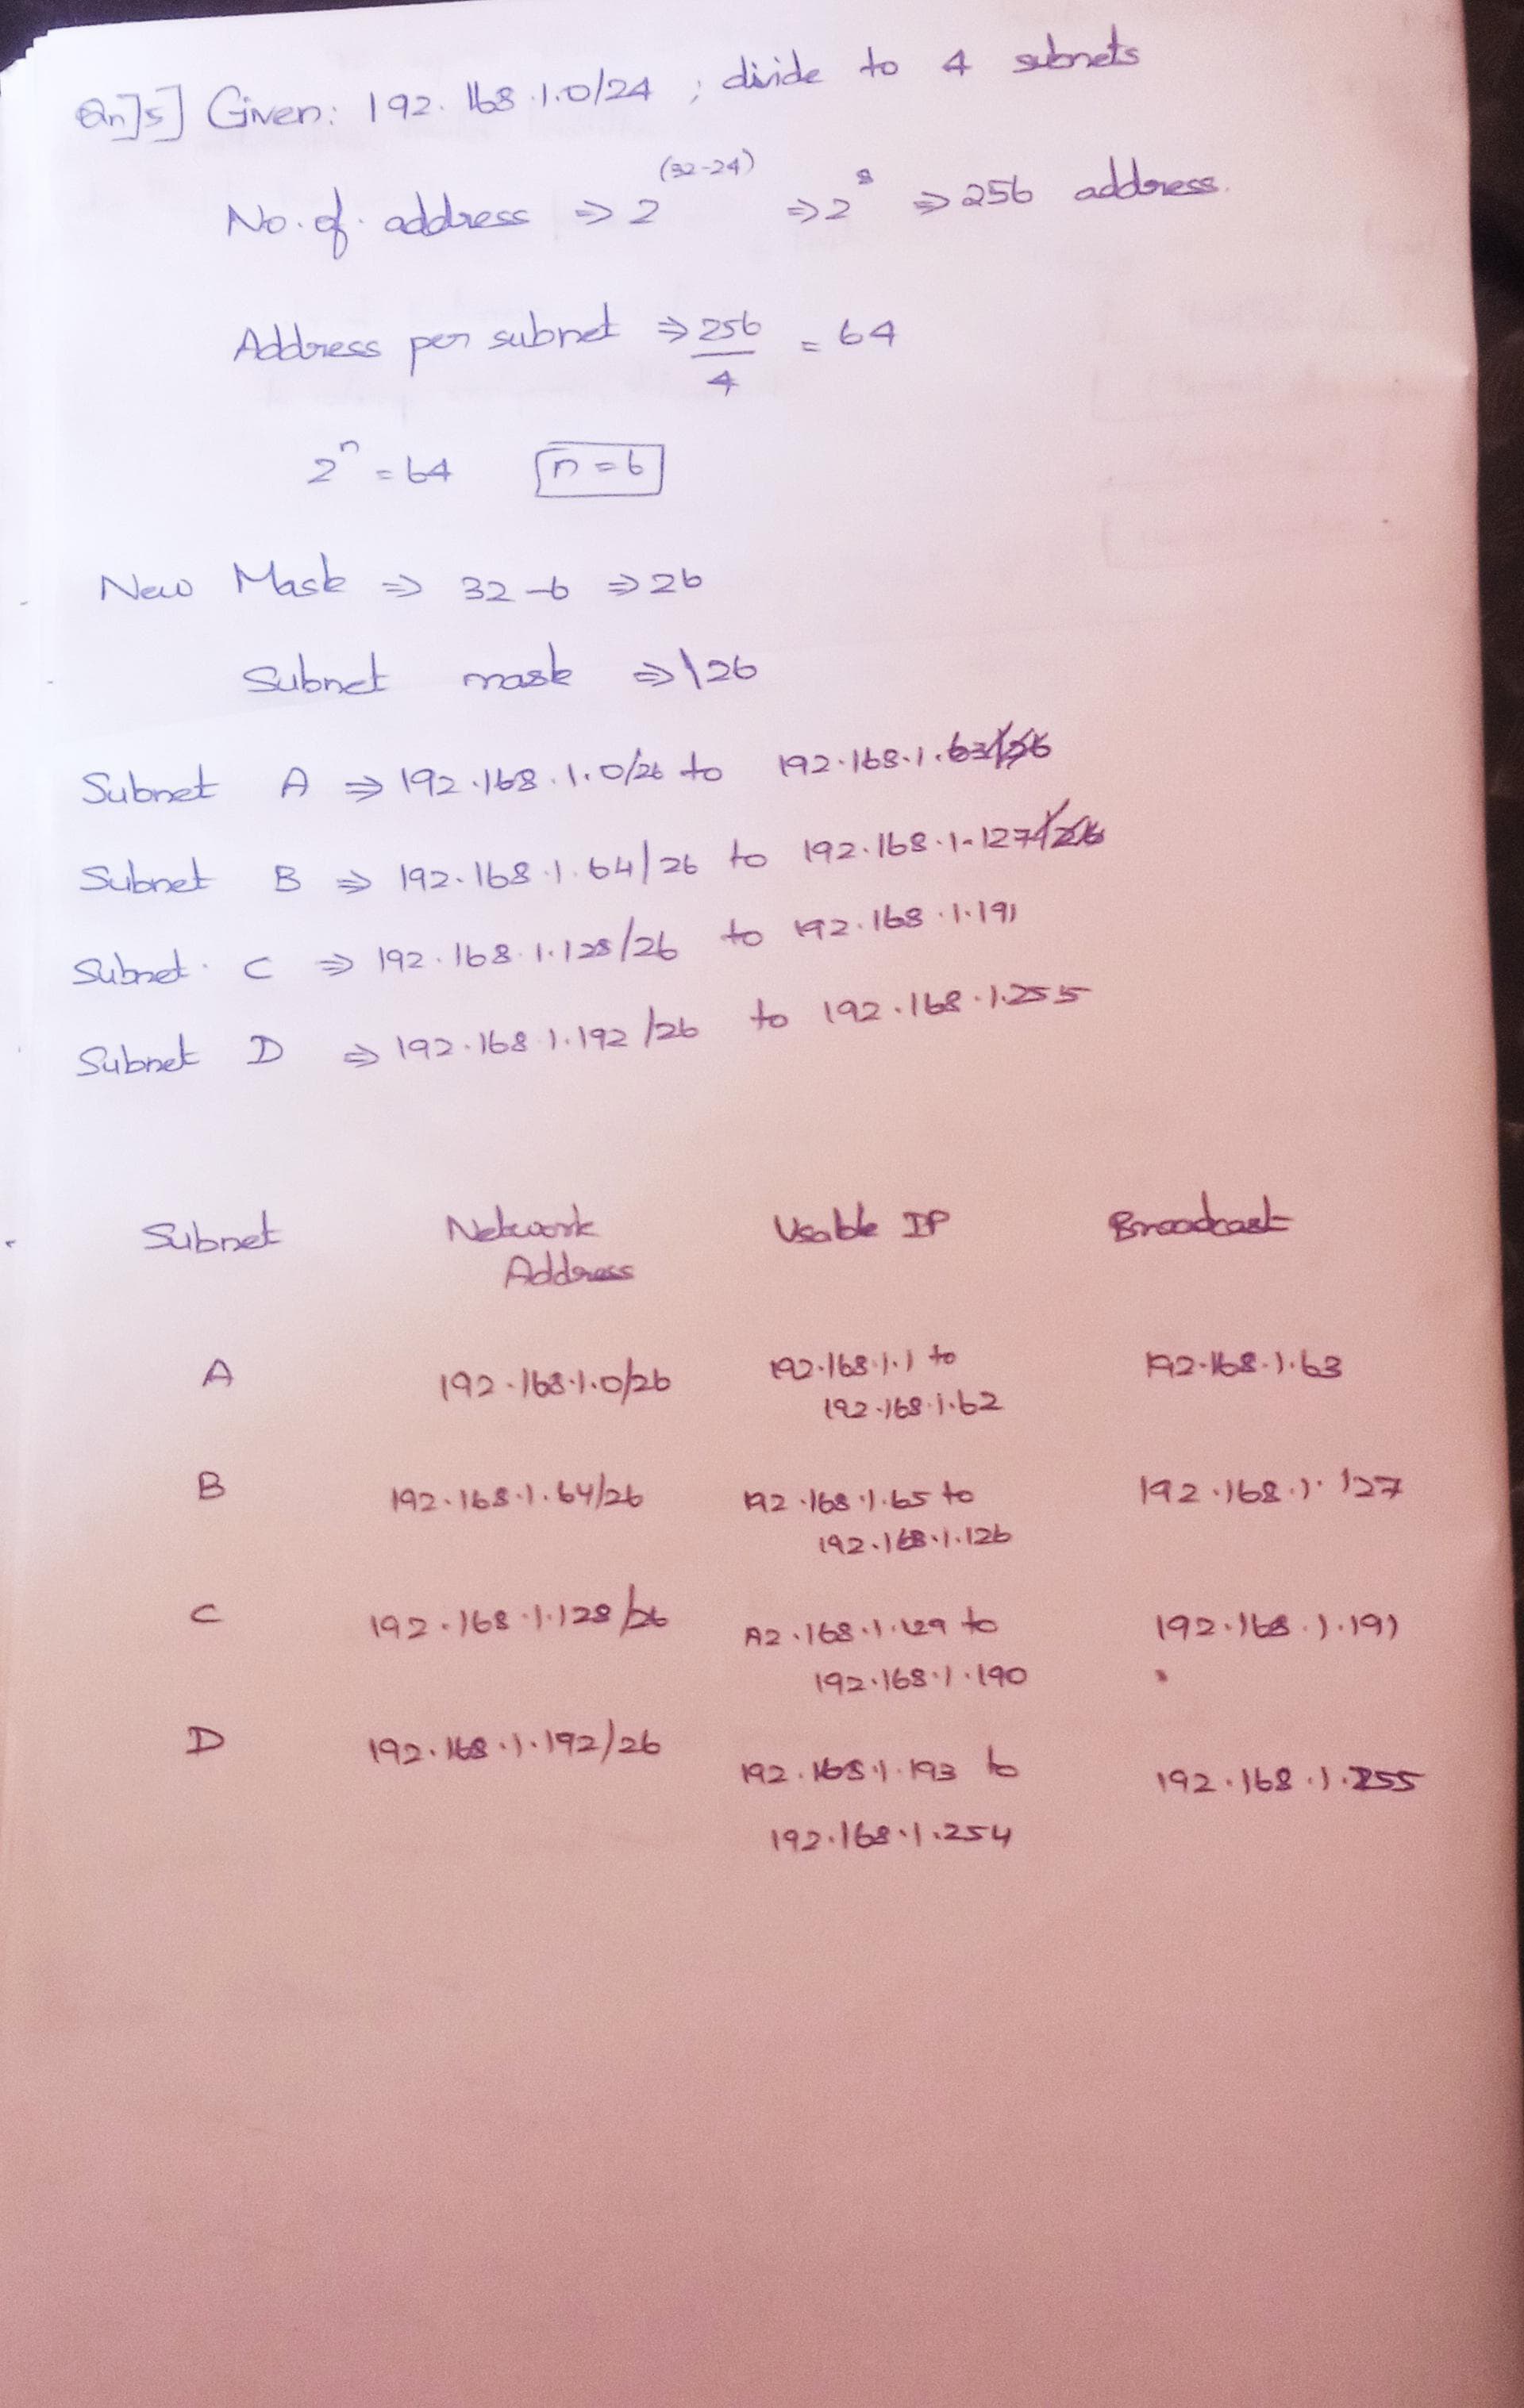 Qn]5] Given: 192.168.1.0/24 ; divide to 4 subnets
No. of. address ⇒ 2^(32-24) ⇒ 2^8 ⇒ 256 address.
Address per subnet ⇒ 256/4 = 64
2^n = 64 n = 6
New Mask ⇒ 32-6 ⇒ 26
Subnet mask ⇒ \26
Subnet A ⇒ 192.168.1.0/26 to 192.168.1.63
Subnet B ⇒ 192.168.1.64/26 to 192.168.1.127
Subnet C ⇒ 192.168.1.128/26 to 192.168.1.191
Subnet D ⇒ 192.168.1.192/26 to 192.168.1.255
Subnet Network Address Usable IP Broadcast
A 192.168.1.0/26 192.168.1.1 to 192.168.1.62 192.168.1.63
B 192.168.1.64/26 192.168.1.65 to 192.168.1.126 192.168.1.127
C 192.168.1.128/26 192.168.1.129 to 192.168.1.190 192.168.1.191
D 192.168.1.192/26 192.168.1.193 to 192.168.1.254 192.168.1.255